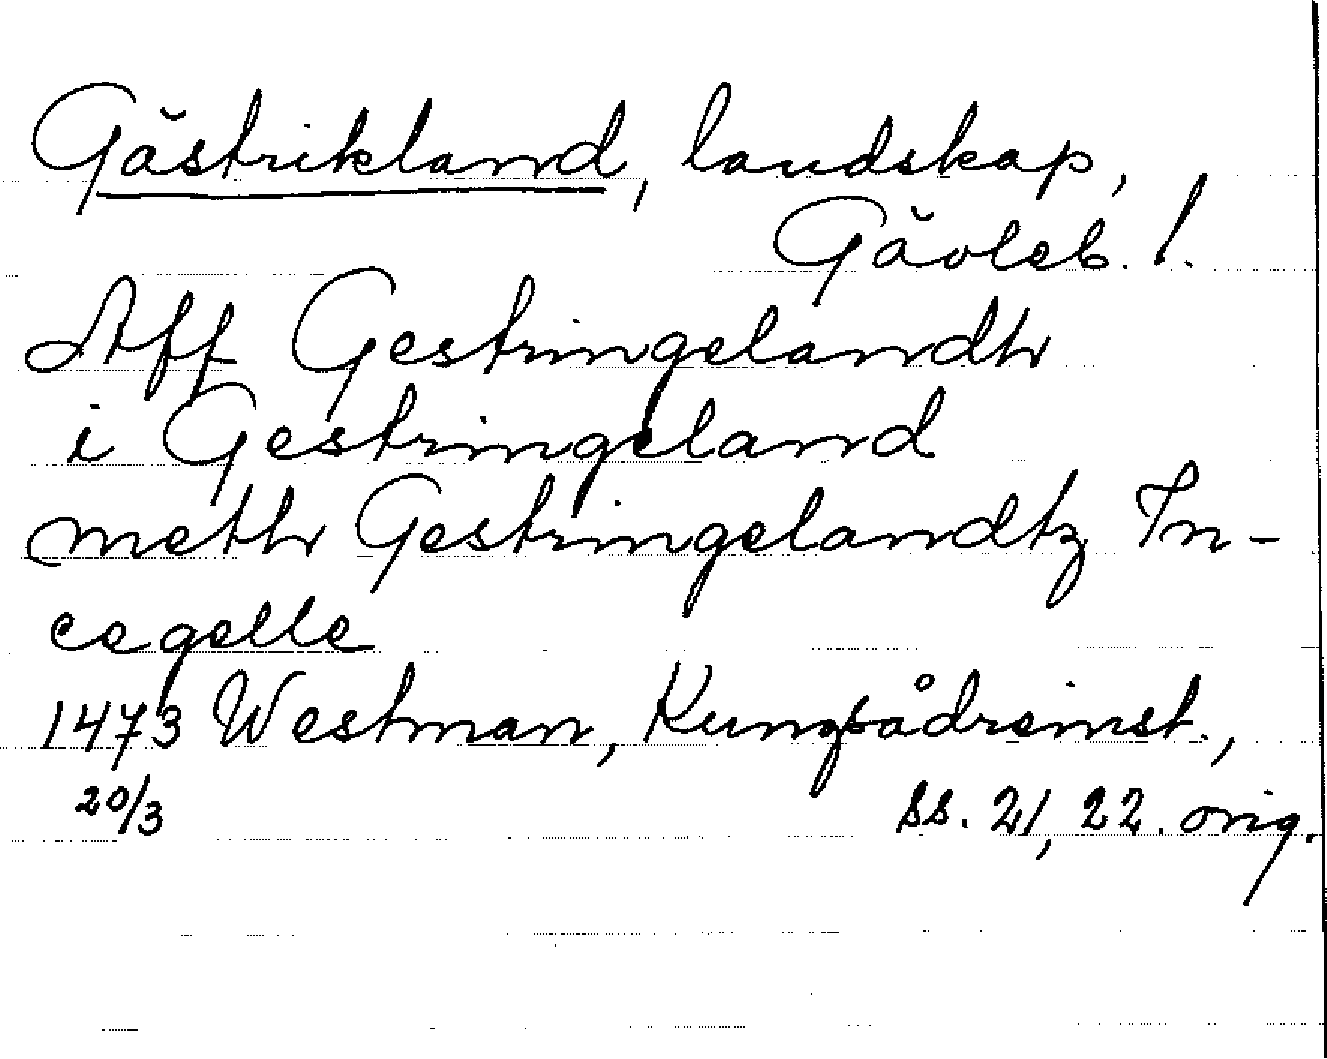 Gästrikland, landskap,
Gävleb. l.
Aff Gestringelandh
i Gestringeland
meth Gestringelandtz In-
cegelle
1473 Westman, Kungsådreinst.,
20/3 ss. 21, 22. orig.